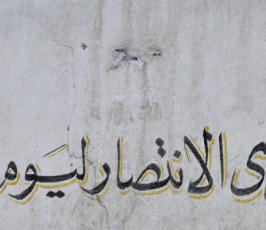 ى الانتصار ليوم